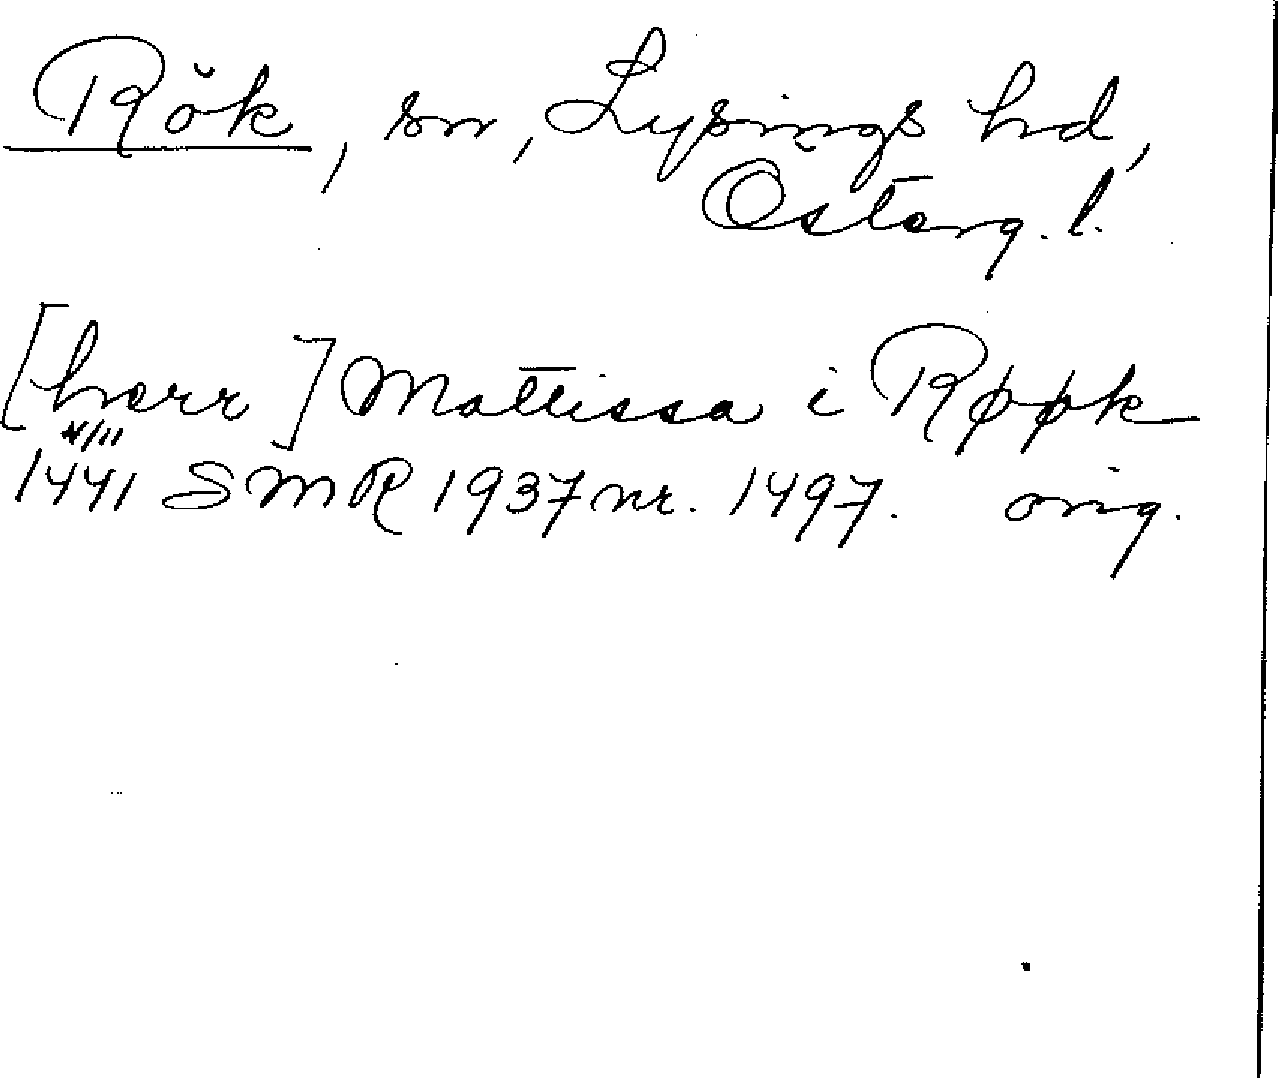 Rök, sn, Lysings hd,
Österg. l.
[herr] Mattissa i Røøk
1441 SMR 1937 nr. 1497. orig.